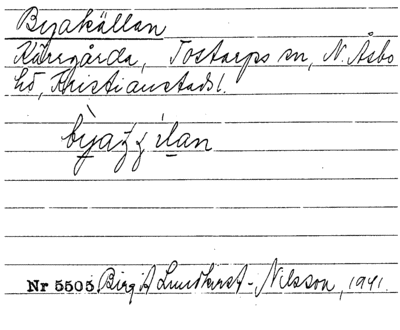 Byakällan
Kärrgårda, Tostarps sn, N. Åsbo
hd, Kristianstads l.
Nr 5505 Birgit Lundkvist-Nilsson, 1941.